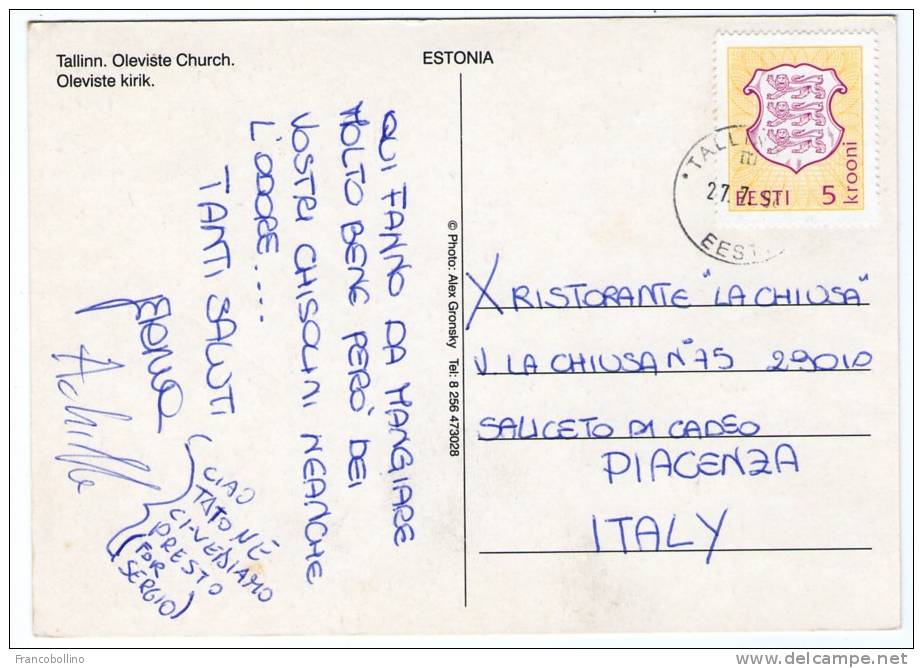 Tallinn. Oleviste Church.
Oleviste kirik.
ESTONIA
QUI FANNO DA MANGIARE
MOLTO BENE PERÒ DEI
VOSTRI CHISOLINI NEANCHE
L'ODORE....
TANTI SALUTI
Achille
CIAO
TATONE
CI-VEDIAMO
PRESTO
(FOR
SERGIO)
© Photo: Alex Gronsky Tel: 8 256 473028
TALLINN
27.7.
EESTI
EESTI 5 krooni
X RISTORANTE "LA CHIUSA"
V. LA CHIUSA N°75 29010
SALICETO DI CADEO
PIACENZA
ITALY
Francobollino
www.delcampe.net